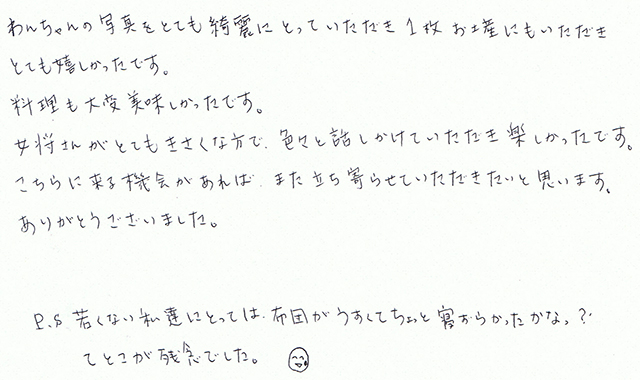 わんちゃんの写真をとても綺麗にとっていただき 1枚 お土産にもいただき
とても嬉しかったです。
料理も大変美味しかったです。
女将さんがとてもきさくな方で、色々と話しかけていただき楽しかったです。
こちらに来る機会があれば、また立ち寄らせていただきたいと思います。
ありがとうございました。
P.S 若くない私達にとっては、布団がうすくてちょっと寝ずらかったかなっ?
てとこが残念でした。